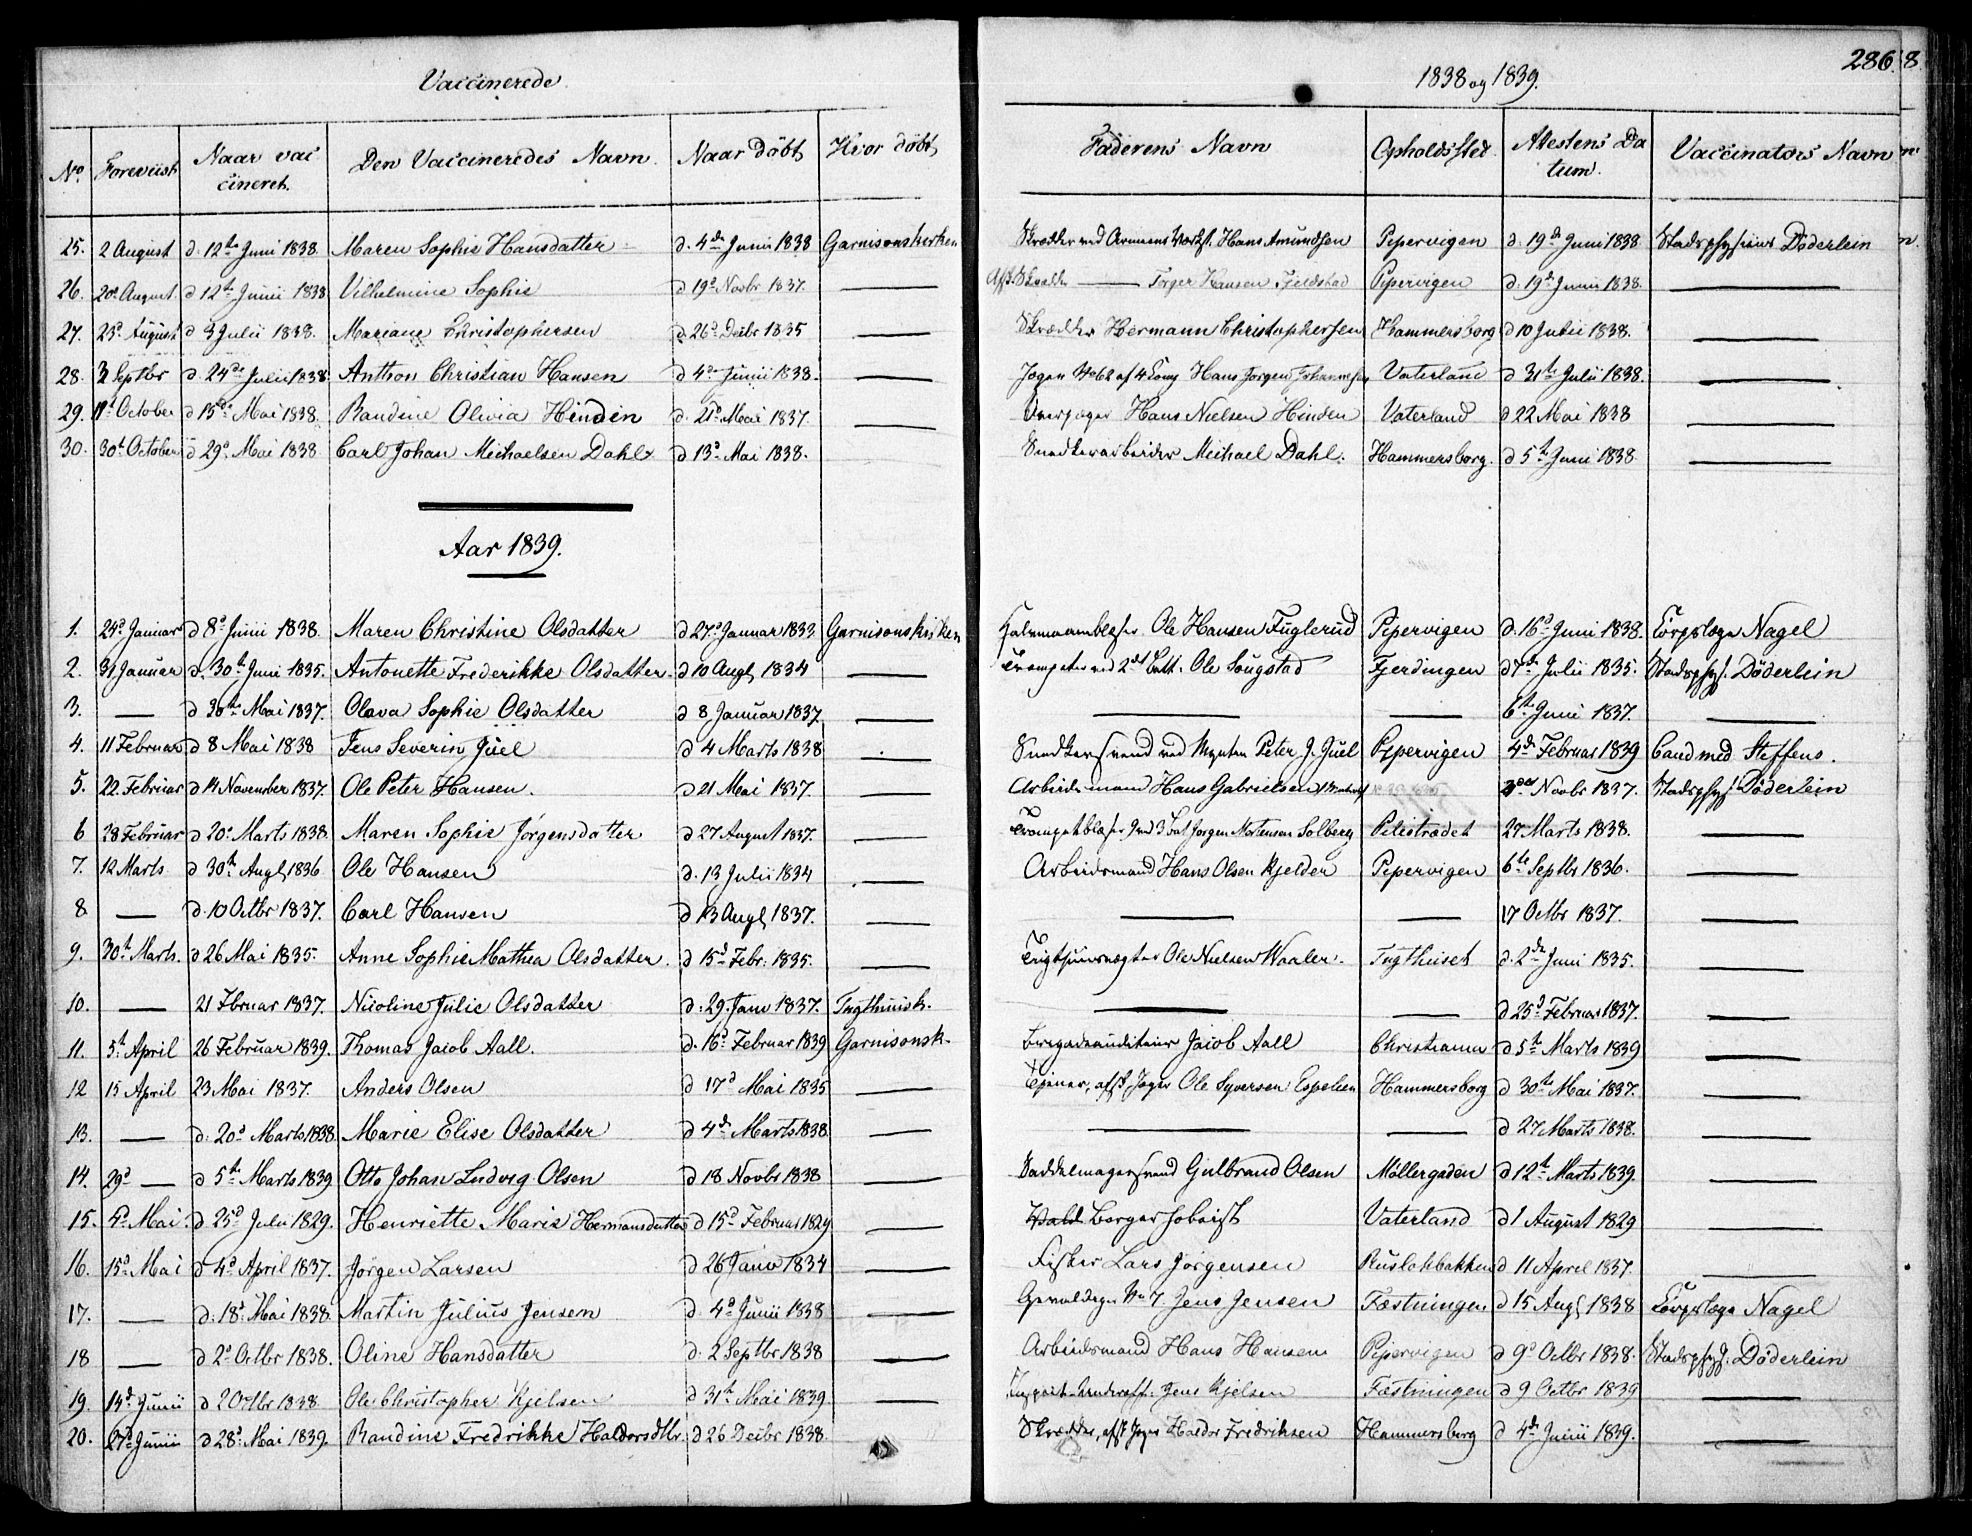 Vaccinerede
1838 og 1839.
286.
8
No. Foreviist Naar vaccineret. Den Vaccineredes Navn. Naar Döbt Hvor döbt, Faderens Navn Opholdssted Attestens Datum. Vaccinators Navn
25. 2 August d. 12te Juni 1838. Maren Sophie Hansdatter d. 4de Juni 1838 Garnisonskirken Skrædder ved Hans Amundsen Pepervigen d. 19de Juni 1838 Stadsphysicus Döderlein
26. 20d August d 12te Junii 1838 Vilhelmine Sophie d 19d Novbr 1837. — Afsk. Skrædder — Torger Hansen Fjeldstad Pepervigen d. 19de Junii 1838. —
27. 23d August d 3 Julii 1838. Mariane Christophersen d 26d Decbr 1835 — Skrædder Hermann Christophersen Hammersborg d 10 Julii 1838. —
28. 3 Septbr d. 24de Julii 1838 Anthon Christian Hansen d 4de Junii 1838. — Jæger No 62 af 4 Comp Hans Jörgen Johannesen Vaterland d 31te Julii 1838. —
29. 11t October d 15de Mai 1838. Randine Olivia Hinden d. 21d Mai 1837. — Overjæger Hans Nielsen Hinden Vaterland d 22 Mai 1838 —
30. 30t October d 29d Mai 1838 Carl Johan Michaelsen Dahl d 13d Mai 1838. Snedkerarbeider Michael Dahl. Hammersborg. d 5te Juni 1838 —
Aar 1839.
1. 24d Januar d 8d Junii 1838. Maren Christine Olsdatter d 27d Januar 1833. Garnisonskirken Halvmaanblæser Ole Hansen Fuglerud Pepervigen d. 16d Juni 1838. Corpslæge Nagel
2. 31 Januar d. 30te Juni 1835. Antonette Frederikke Olsdatter d 10 Augt 1834 — Trompeter ved 2det Batt. Ole Sougstad Fjerdingen d 7de Julii 1835. Stadsphys. Döderlein
3. — d 30te Mai 1837. Olava Sophie Olsdatter d 8 Januar 1837 — — — 6te Juni 1837. —
4. 11 Februar d 8 Mai 1838 Jens Severin Juel d 4 Marts 1838 — Snedkersvend ved Mynten Peter J. Juel Pepervigen 4de Februar 1839 Cand med Steffens.
5. 22. Februar d 14 November 1837. Ole Peter Hansen. d 21 Mai 1837. — Arbeidsmand Hans Gabrielsen Novbr 1837. Stadsphys. Döderlein
6 28 Februar d 20d Marts 1838 Maren Sophie Jörgensdatter d 27 August 1837. — Trompetblæser ved 3 Bat Jörgen Mortensen Solberg Pilestrædet 27. Marts 1838. —
7. 12 Marts d 30te Augt 1836 Ole Hansen d. 13 Julii 1834 — Arbeidsmand Hans Olsen Kjelder Pepervigen 6te Septbr 1836. —
8 — d. 10 Octbr 1837. Carl Hansen d 13 Augt 1837. — — — 17 Octbr 1837. —
9. 30te Marts. d 26 Mai 1835. Anne Sophie Mathea Olsdatter. d 15d Febr. 1835. — Tugthuusvægter Ole Nielsen Waaler. Tugthuset d. 2de Juni 1835. —
10. — 21 Fbruar 1837. Nicoline Julie Olsdatter d. 29. Janv 1837. Tugthuusk. — — d 25d Februar 1837. —
11. 5te April 26 Februar 1839. Thomas Jacob Aall. d. 16d Februar 1839 Garnisonsk. Brigadeauditeur Jacob Aall Christiania d 5te Marts 1839 —
12 15 April 23 Mai 1837. Anders Olsen d 17d Mai 1835 — Tjener, afsk. Jæger Ole Syversen Espelien Hammersborg d 30te Mai 1837. —
13. — d. 20d Marts 1838. Marie Elise Olsdatter d 4de Marts 1838. — — — d 27 Marts 1838. —
14. 29d — d 5te Marts 1839 Otto Johan Ludvig Olsen d 18 Novbr 1838 — Saddelmagersvend Gulbrand Olsen Möllergaden d 12te Marts 1839. —
15. 4d Mai. d 25d Julii 1829. Henriette Marie Hermansdatter d 15d Februar 1829 — Borger Vaterland d 1 August 1829 —
16. 15d Mai d 4d April 1837. Jörgen Larsen d 26 Janv 1834 — Fisker Lars Jörgensen Ruslökbakken d 11 April 1837. —
17. — d. 18d Mai 1838. Martin Julius Jensen d. 4d Junii 1838 — Gevaldiger No 7 Jens Jensen Fæstningen d 15 Augt 1838 Corpslæge Nagel
18 — d 2d Octbr 1838. Oline Hansdatter d. 2 Septbr 1838 — Arbeidsmand Hans Hansen Pepervigen d 9d Octbr 1838. Stadsphys. Döderlein
19. 14d Junii d 2 Octbr 1838 Ole Christopher Kjelsen d 31te Mai 1839. — Jens Kjelsen Fæstningen d 9 Octbr 1839 —
20. 27d Junii d 28d Mai 1839. Randine Fredrikke Haldorsdtr. d 26 Decbr 1838. Skrædder, afsk. Jæger Haldor Fredriksen Hammersborg d 4de Junii 1839. —